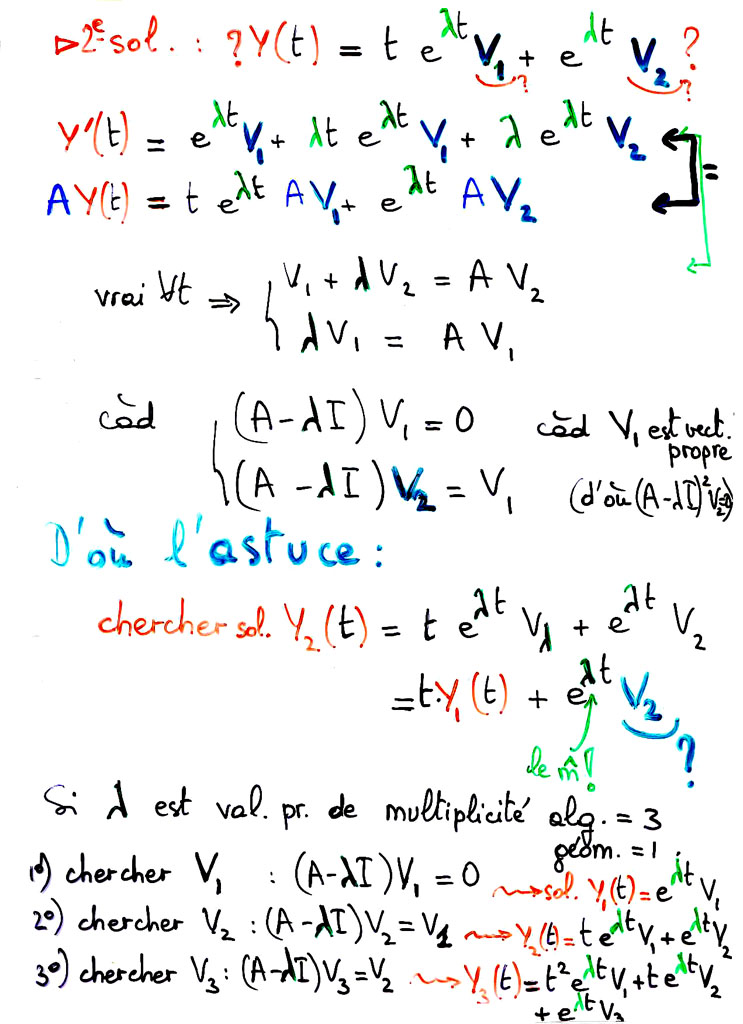 ▷2e sol. : ? Y(t) = t e^{λt} V₁ + e^{λt} V₂ ?
? ?
Y'(t) = e^{λt} V₁ + λt e^{λt} V₁ + λ e^{λt} V₂
AY(t) = t e^{λt} AV₁ + e^{λt} AV₂
=
vrai ∀t ⇒ { V₁ + λV₂ = A V₂
λV₁ = A V₁
càd { (A-λI) V₁ = 0 càd V₁ est vect. propre
(A-λI) V₂ = V₁ (d'où (A-λI)² V₂=0)
D'où l'astuce :
chercher sol. Y₂(t) = t e^{λt} V_λ + e^{λt} V₂
= t·Y₁(t) + e^{λt} V₂
le m̂! ?
Si λ est val. pr. de multiplicité alg. = 3
géom. = 1.
1°) chercher V₁ : (A-λI)V₁ = 0 ⇝ sol. Y₁(t) = e^{λt} V₁
2°) chercher V₂ : (A-λI)V₂ = V₁ ⇝ Y₂(t) = t e^{λt} V₁ + e^{λt} V₂
3°) chercher V₃ : (A-λI)V₃ = V₂ ⇝ Y₃(t) = t² e^{λt} V₁ + t e^{λt} V₂
+ e^{λt} V₃